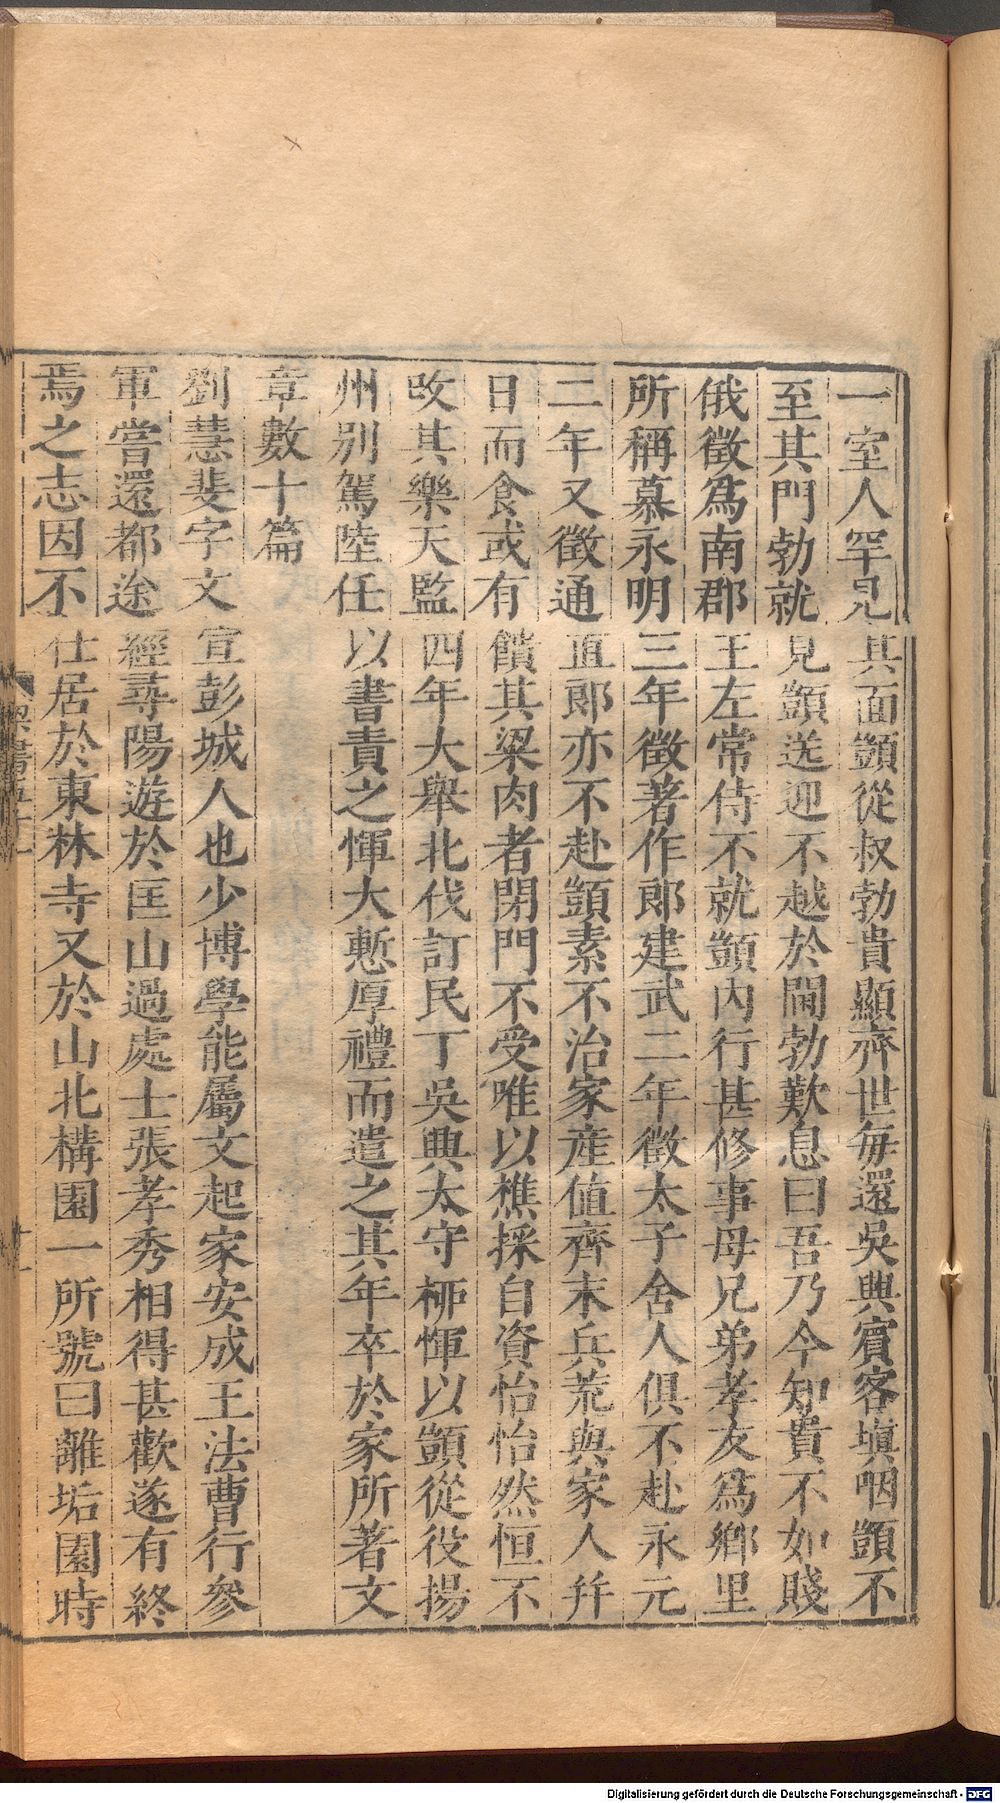 一室人罕見其面顗從叔勃貴顯齊世每還吳興賓客塡咽顗不
至其門勃就見顗送迎不越於閫勃歎息曰吾乃今知貴不如賤
俄徵爲南郡王左常侍不就顗內行甚修事母兄弟孝友爲鄉里
所稱慕永明三年徵著作郎建武二年徵太子舍人俱不赴永元
二年又徵通直郎亦不赴顗素不治家産値齊末兵荒與家人幷
日而食或有饋其粱肉者閉門不受唯以樵採自資怡怡然恒不
攺其樂天監四年大舉北伐訂民丁吳興太守柳惲以顗從役揚
州別駕陸任以書責之惲大慙厚禮而遣之其年卒於家所著文
章數十篇
劉慧斐字文宣彭城人也少博學能屬文起家安成王法曹行參
軍嘗還都途經尋陽遊於匡山過處士張孝秀相得甚歡遂有終
焉之志因不仕居於東林寺又於山北構園一所號曰離垢園時
梁書五十一
Digitalisierung gefördert durch die Deutsche Forschungsgemeinschaft - DFG